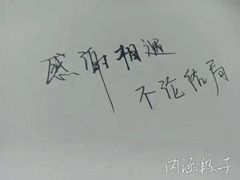 感谢相遇
不论结局
内涵段子